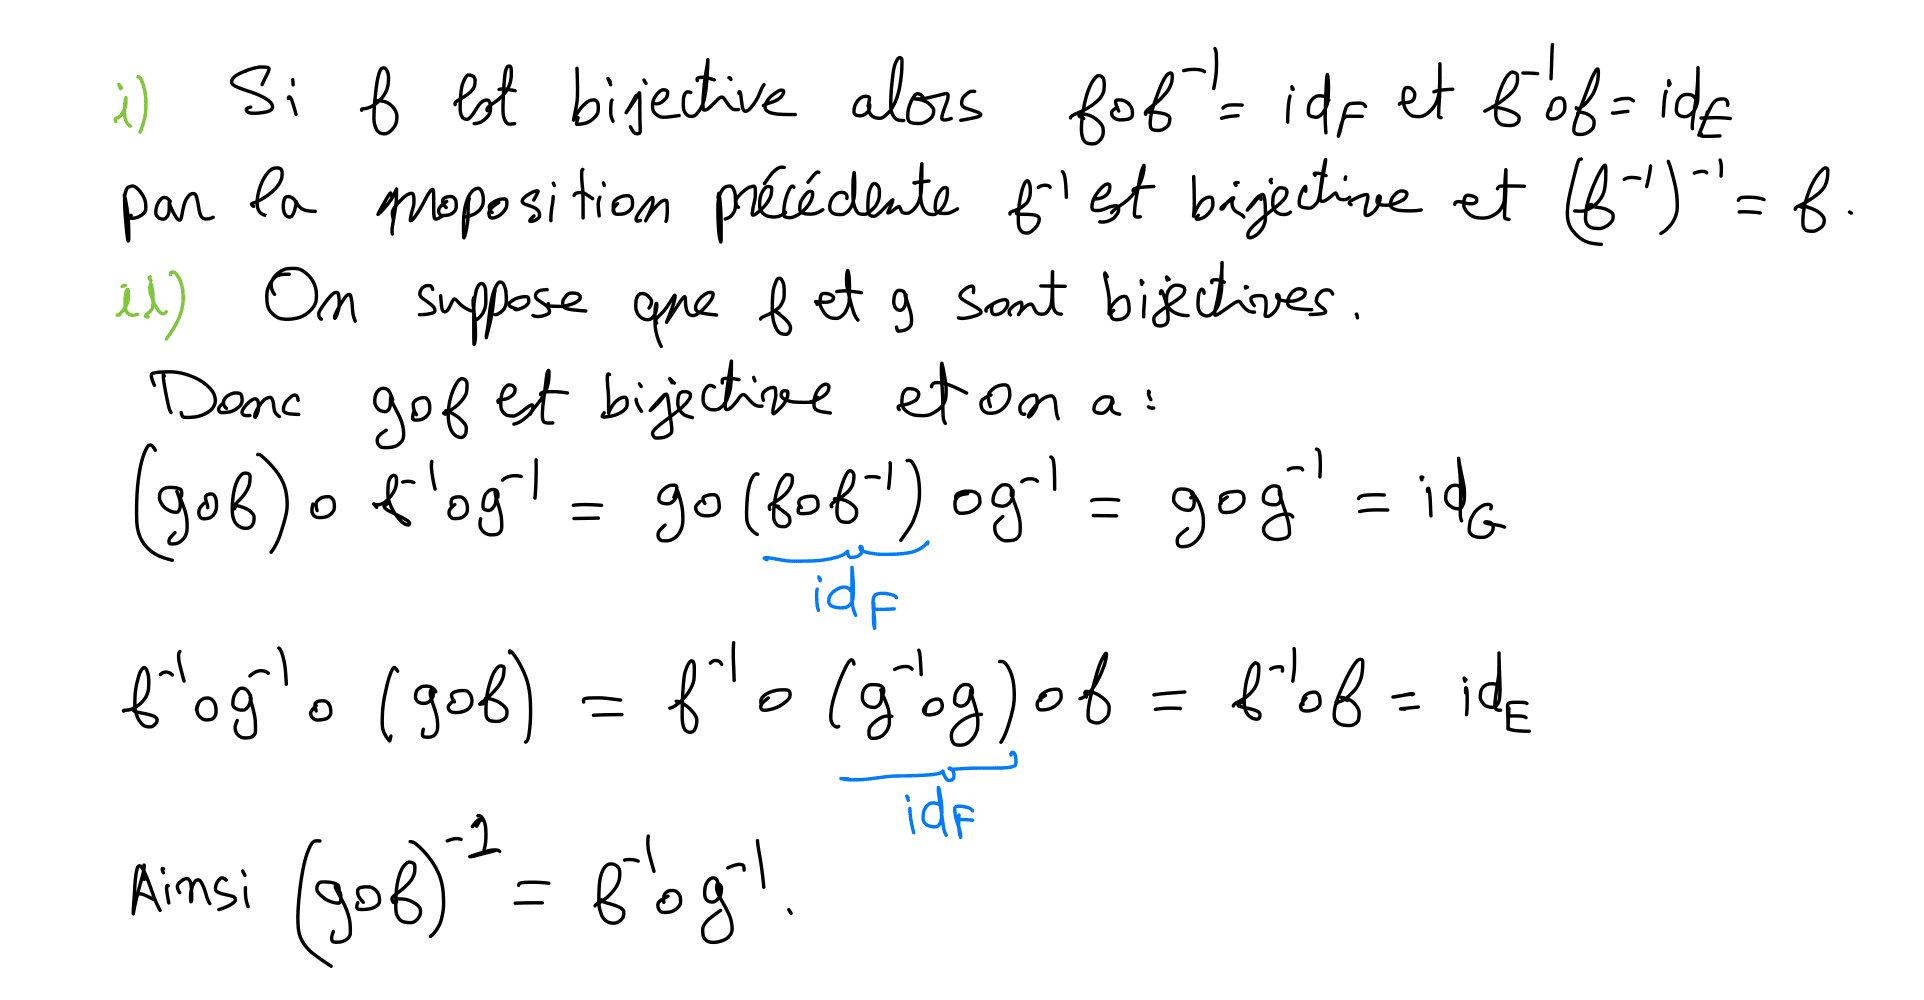 i) Si f est bijective alors f∘f⁻¹ = id_F et f⁻¹∘f = id_E
par la proposition précédente f⁻¹ est bijective et (f⁻¹)⁻¹ = f.
ii) On suppose que f et g sont bijectives.
Donc g∘f est bijective et on a :
(g∘f)∘f⁻¹∘g⁻¹ = g∘(f∘f⁻¹)∘g⁻¹ = g∘g⁻¹ = id_G
id_F
f⁻¹∘g⁻¹∘(g∘f) = f⁻¹∘(g⁻¹∘g)∘f = f⁻¹∘f = id_E
id_F
Ainsi (g∘f)⁻¹ = f⁻¹∘g⁻¹.